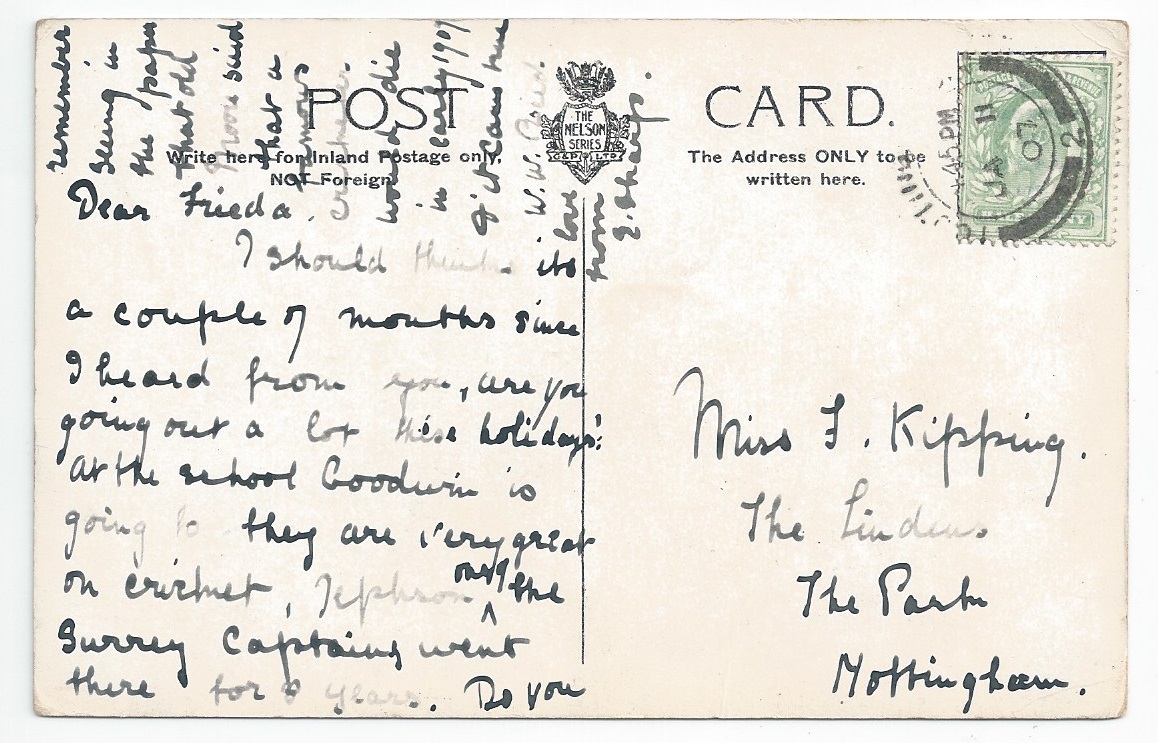 POST CARD.
THE
NELSON
SERIES
G&P LTD
Write here for Inland Postage only,
NOT Foreign.
The Address ONLY to be
written here.
Dear Frieda,
I should think its
a couple of months since
I heard from you, are you
going out a lot these holidays?
At the school Goodwin is
going to they are very great
on cricket, Jephson one of the
Surrey Captains went
there for 8 years. Do you
remember
seeing in
the paper
that old
Moore said
that a
famous
cricketer
would die
in early 1907
& it came true
W. W. Read.
love
from
E. Sharp
Miss F. Kipping.
The Lindens
The Park
Nottingham.
45 PM
JA 11
07
2